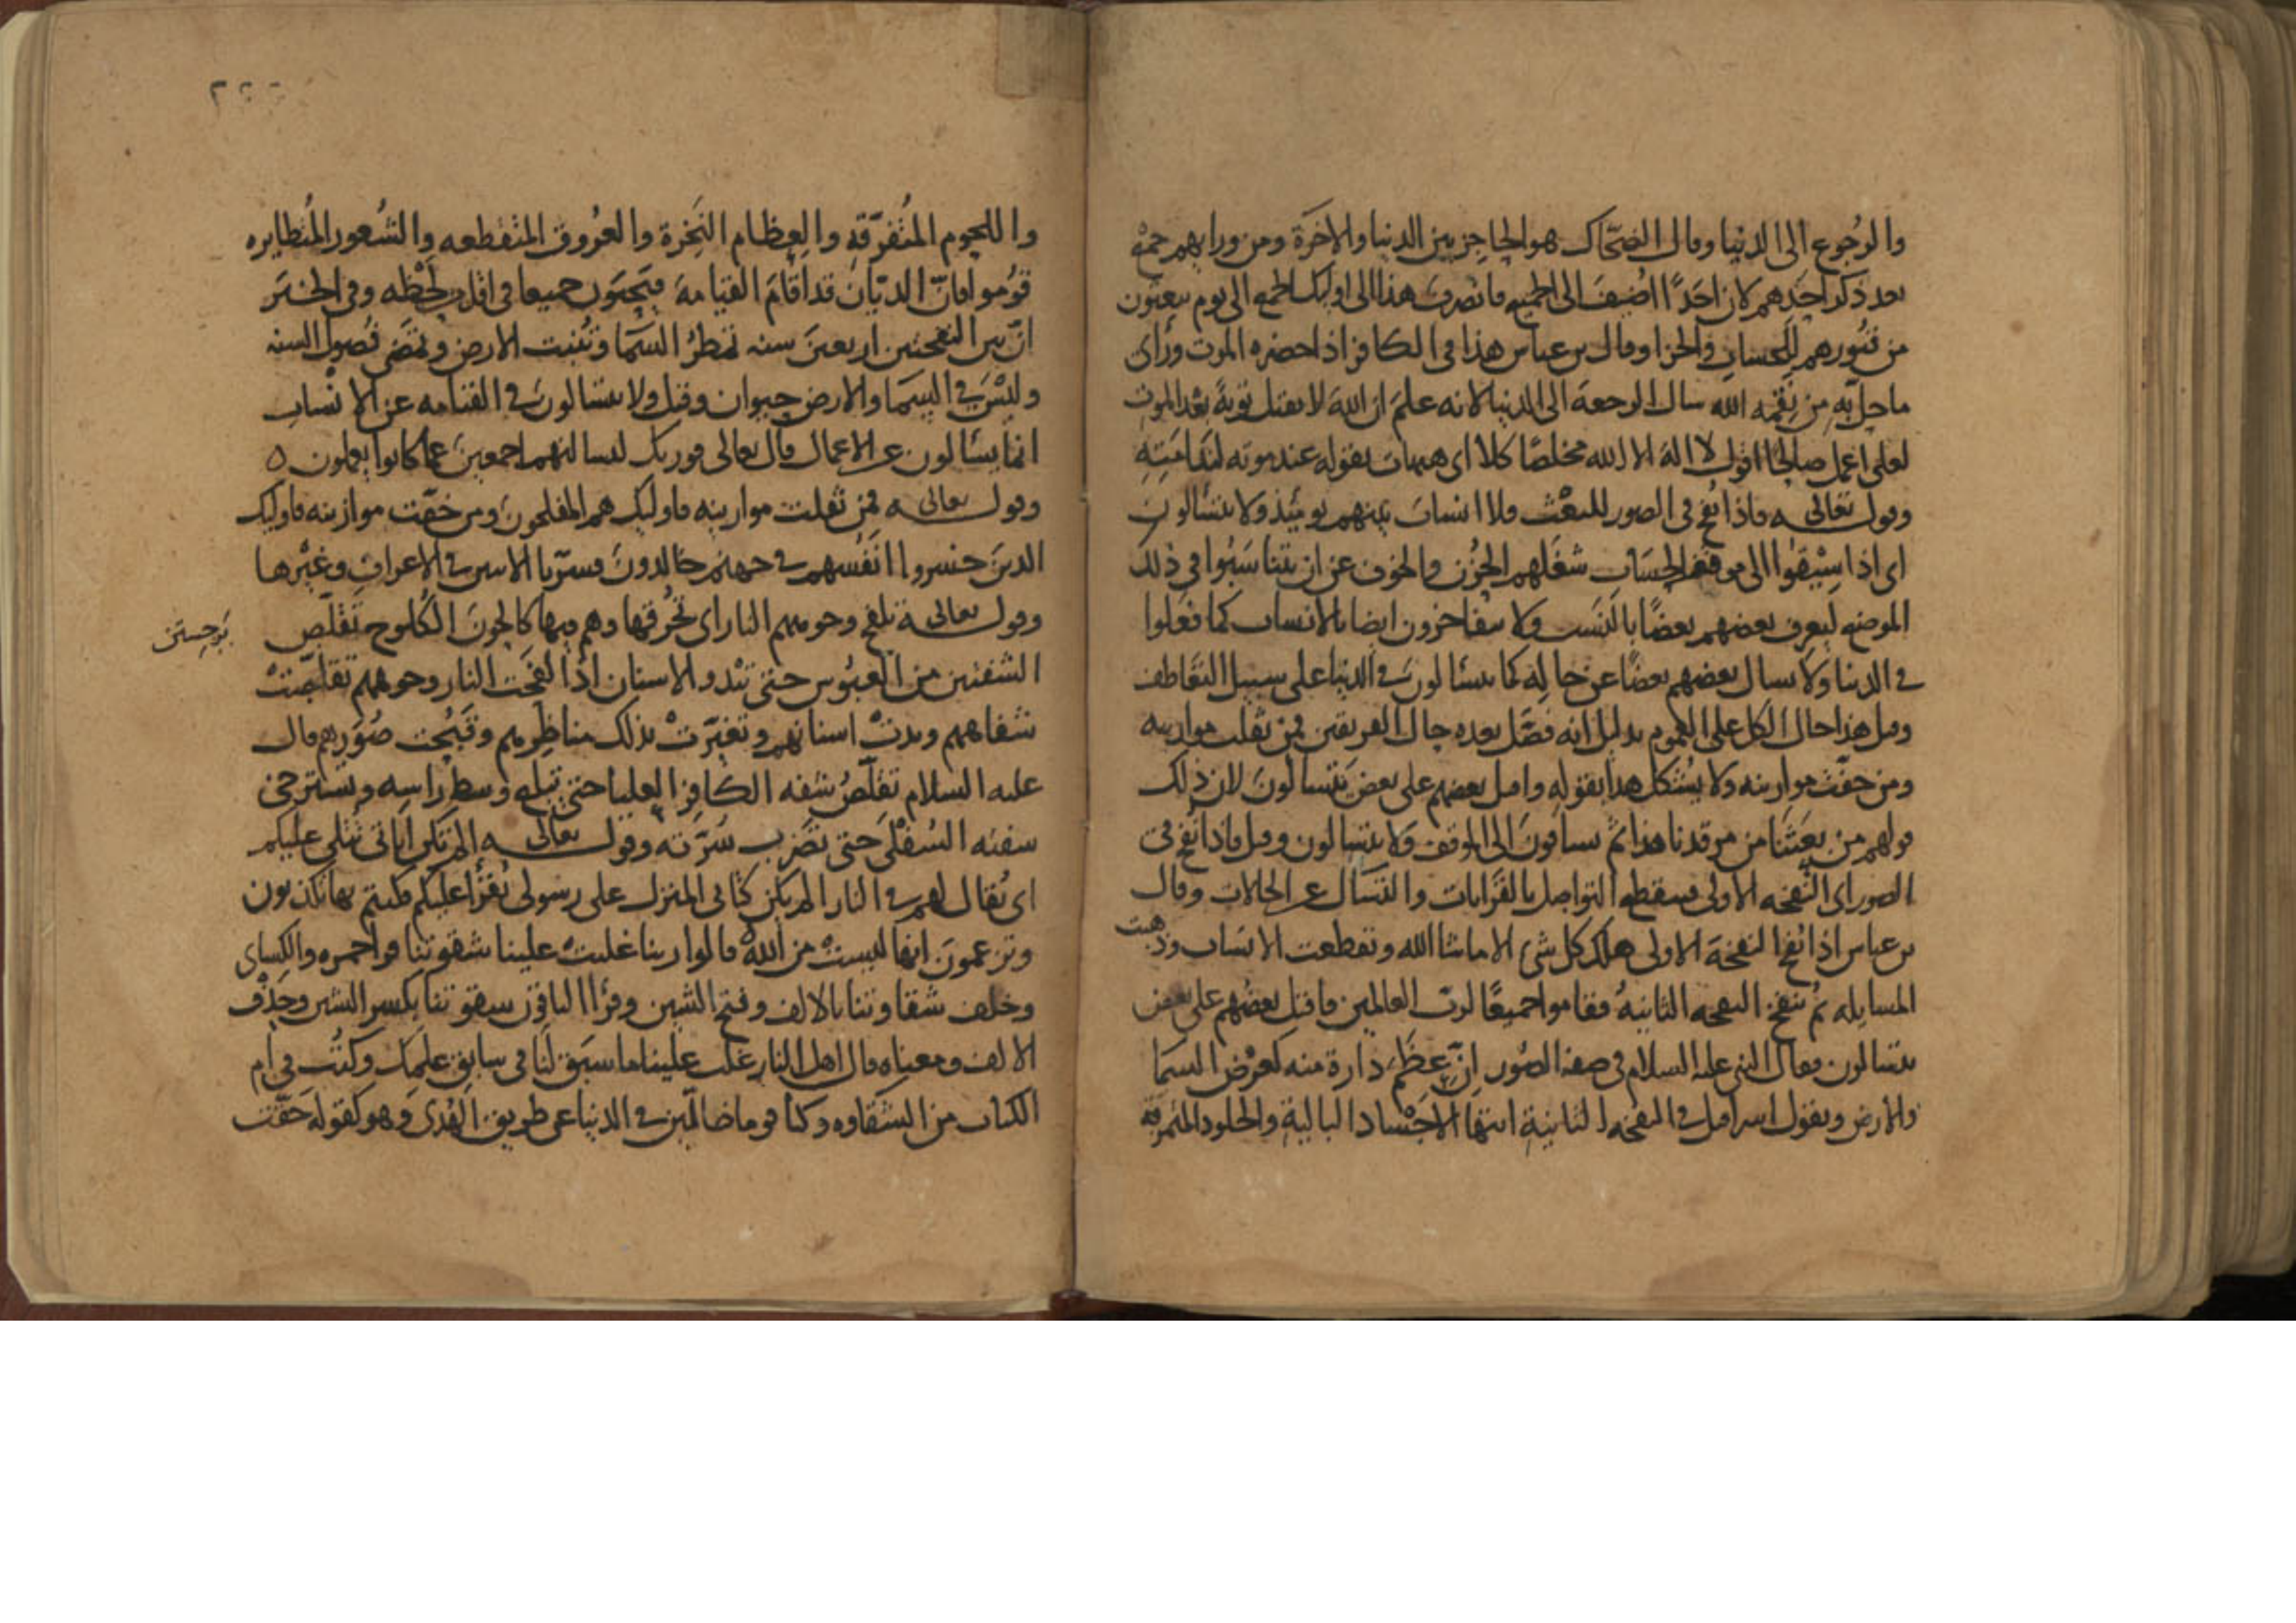 والرُجوع الى الدنيا وقال الضحّاك هو الحاجِز بين الدنيا والاخرَة ومن ورايهم جمعٌ
بعد ذكر احدهم لان احَدًا اضُيفَ الى الجميع فانصرف هذا الى اوليك الجمع الى يوم يبعثون
من قبُورهم للحساب والجزا وقال بن عباس هذا في الكافر اذا حضره الموت ورَأى
ما حل به من نِقمه الله سال الرجعة الى الدنيا لانه علمَ ان اللهَ لا يقبل توبةً بعد الموت
لعلى اعمل صالحًا اقول لا اله الا الله مخلصًا كلا اى هيهات يقوله عند موته لندامَتِهِ
وقوله تعالى فاذا نُفخ في الصور للبعْث فلا انساب بينهم يومئذٍ ولا يتسألونَ
اى اذا سِيْقوا الى موقف الحِسَاب شغَلهم الحزُن والخوف عن ان يتناسَبُوا في ذلك
الموضع ليَعرف بعضهم بعضًا بالنسَب ولا يتفاخرون ايضا بالانساب كما فعَلوا
في الدنيا ولا يسال بعضهم بعضًا عن حالِه كما يتسالون في الدنيا على سبيل التعَاطف
وقيل هذا حال الكل على العموم بدليل انه فصَّل بعده حال الفريقين فمن ثقلت موازينه
ومن خفّت موازينه ولا يُشكل هذا بقوله واقبل بعضهم على بعض يتسالونَ لان ذلك
قولهم من بعَثنا من مرقدنا هذا ثمّ يساقونَ الى الموقف ولا يتسالون وقيل فاذا نُفخ في
الصور اى النفخه الاولى فينقطع التواصل بالقرَابات والتسَال عن الحالات وقال
بن عباس اذا نُفخ النفخة الاولى هلك كل شئ الا ما شا الله وتقطعت الانسَاب وذهبت
المسايله ثم يُنفخ النفخه الثانيهُ فقاموا جميعًا لربّ العالمين فاقبل بعضُهم على بعض
يتسالون وقال النبى عليه السلام في صفة الصُور اِنّ عِظَم دارة منه كعرْض السما
والارض ويقول اسرافيل في النفخه الثانيةِ ايتها الاجْسَاد البالية والجلود المتمزقة
واللحوم المتُفرّقةِ والعِظام النَخِرة والعرُوق المتُقطعه والشُعور المتُطايره
قوُموا فانّ الديّان قد اقامَ القيامة فيَجيون جميعا في اقل من لحْظه وفي الخبَر
انّ بين النفختين اربعينَ سنه تمطرُ السَما وتُنبت الارض وتمضى فُصول السنه
وليْسَ في السما والارض حيوان وقيل ولا يتسالونَ في القيامه عن الانْساب
انما يسَالون عن الاعمال قال تعالى فوربك لنسالنهم اجمعينَ عما كانوا يعملون ٥
وقوله تعالى فمن ثقلت موازينه فاوليك هم المفلحونَ ومن خفّت موازينه فاوليك
الذينَ خسروا انفُسهم في جهنم خالدونَ فسرّنا الايتين في الاعراف وغَيْرها
وقوله تعالى تلفح وجوههم النار اى تحُرقها وهم فيها كالحونَ الكُلوح تقلّص
الشفتين من العبُوس حتى تبْدو الاسنان اذا لفحَت النار وجوههم تقلّصَتْ
شفاههم وبدتْ اسنانهم وتغيّرتْ بذلك مناظِرهم وقبُحَت صُوَرهم قال
عليه السلام تقلّصُ شفه الكافِر العليا حتى تبلغ وسط راسِه وتسترخى
شفته السُفْلى حتى تضرِب سُرّته وقوله تعالى الم تكن اياتى تُتلى عليكم
اى يُقال لهم في النار الم يكن كتابى المنزل على رسولى يُقرأ عليكم فكنتم بها تكذبون
وتزعمونَ انها ليستْ من الله قالوا ربنا غلبتْ علينا شقوتنا قرا حمزه والكساى
وخلف شقاوتنا بالالف وفتح الشين وقرأ الباقون شقوتنا بكسر الشين وحَذف
الالف ومعناه قال اهل النار غلب علينا ما سبَق لنَا في سابق علمك وكُتب في ام
الكتاب من الشقاوه وكنا قوما ضالّين في الدنيا عن طريق الهُدى وهو كقوله حَقّت